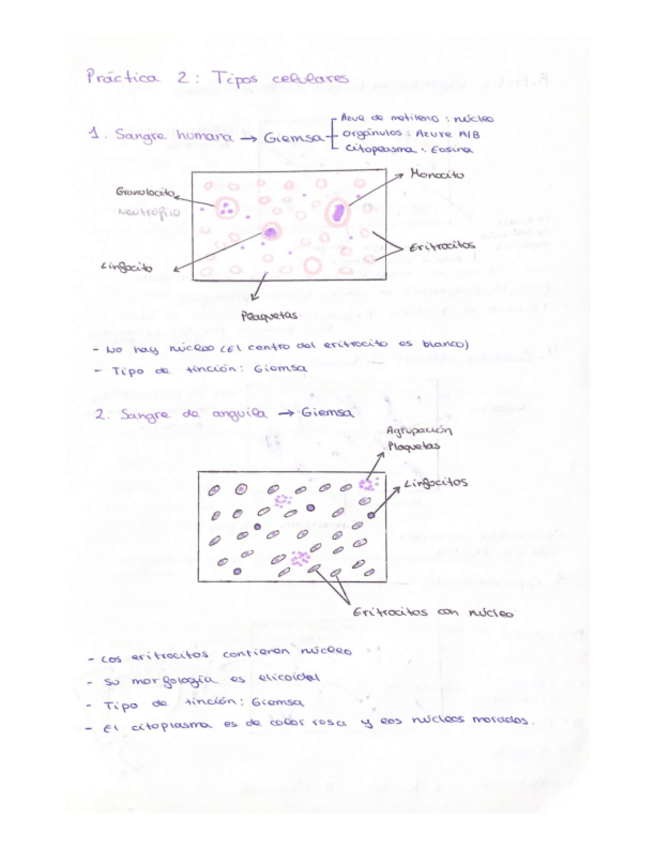 Práctica 2: Tipos celulares
1. Sangre humana → Giemsa
Azue de metileno: núcleo
orgánulos: Azure A/B
citoplasma: Eosina
Monocito
Granulocito
Neutrofilo
Eritrocitos
Linfocito
Plaquetas
- No hay núcleo (El centro del eritrocito es blanco)
- Tipo de tinción: Giemsa
2. Sangre de anguila → Giemsa
Agrupación
Plaquetas
Linfocitos
Eritrocitos con núcleo
- Los eritrocitos contienen núcleo
- Su morfología es elicoidal
- Tipo de tinción: Giemsa
- El citoplasma es de color rosa y los núcleos morados.